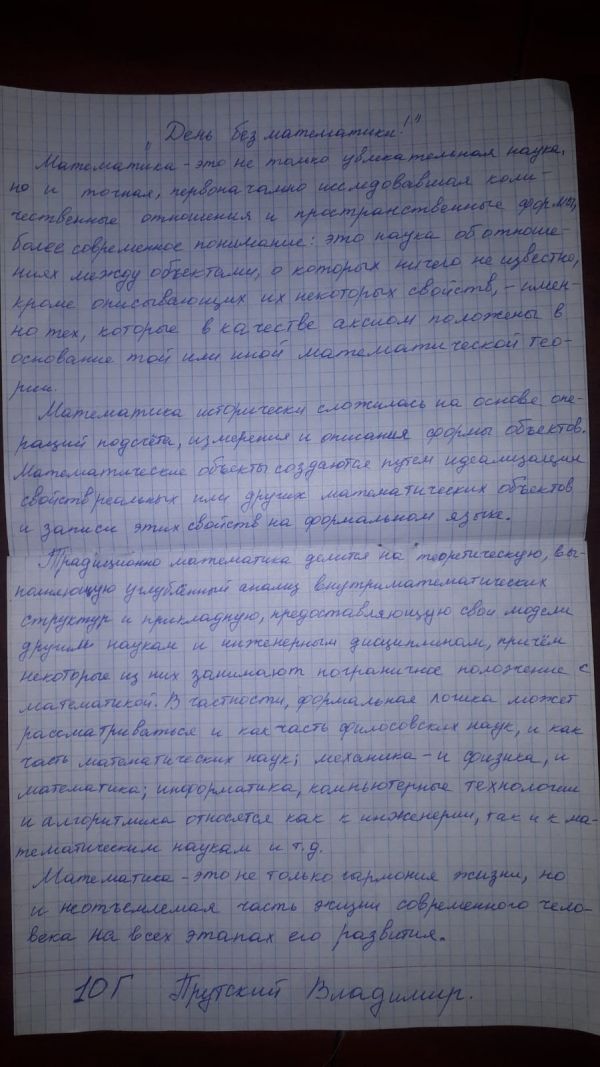 „День без математики!"
Математика - это не только увлекательная наука,
но и точная, первоначально исследовавшая коли-
чественные отношения и пространственные формы,
более современное понимание: это наука об отноше-
ниях между объектами, о которых ничего не известно,
кроме описывающих их некоторых свойств, - имен-
но тех, которые в качестве аксиом положены в
основание той или иной математической тео-
рии.
Математика исторически сложилась на основе опе-
раций подсчёта, измерения и описания формы объектов.
Математические объекты создаются путём идеализации
свойств реальных или других математических объектов
и записи этих свойств на формальном языке.
Традиционно математика делится на теоретическую, вы-
полняющую углублённый анализ внутриматематических
структур и прикладную, предоставляющую свои модели
другим наукам и инженерным дисциплинам, причём
некоторые из них занимают пограничное положение с
математикой. В частности, формальная логика может
рассматриваться и как часть философских наук, и как
часть математических наук; механика - и физика, и
математика; информатика, компьютерные технологии
и алгоритмика относятся как к инженерии, так и к ма-
тематическим наукам и т.д.
Математика - это не только гармония жизни, но
и неотъемлемая часть жизни современного чело-
века на всех этапах его развития.
10Г Прутский Владимир.